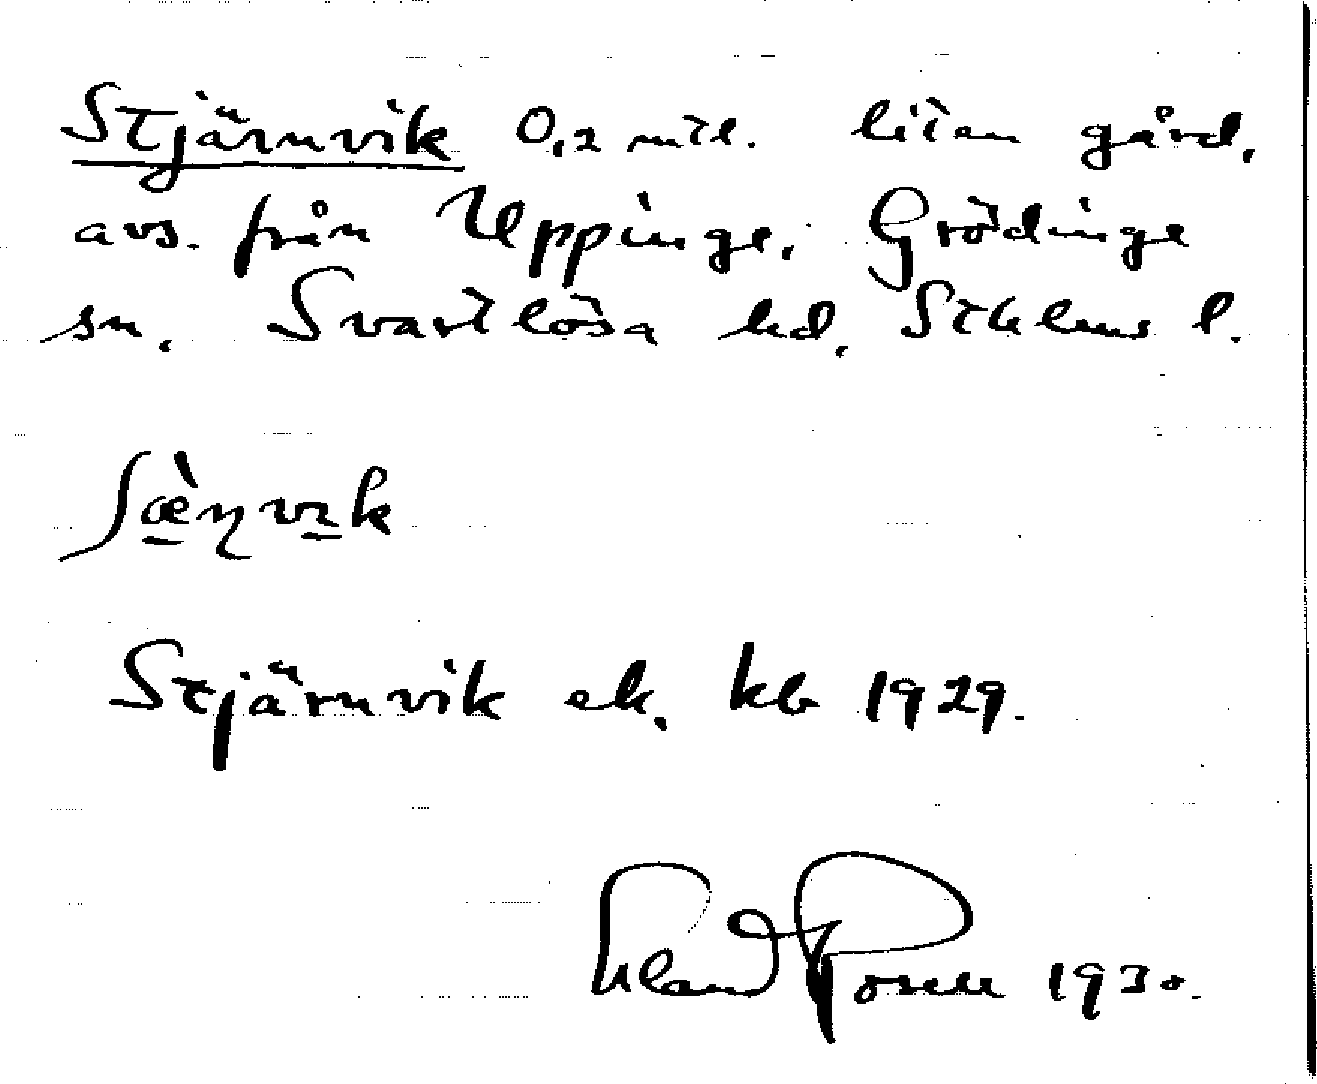 Stjärnvik 0,2 mtl. liten gård,
avs. från Uppinge. Grödinge
sn. Svartlösa hd. Sthlms l.
ʃæ̀ɳvɪk
Stjärnvik ek. kb 1929.
Rosell 1930.